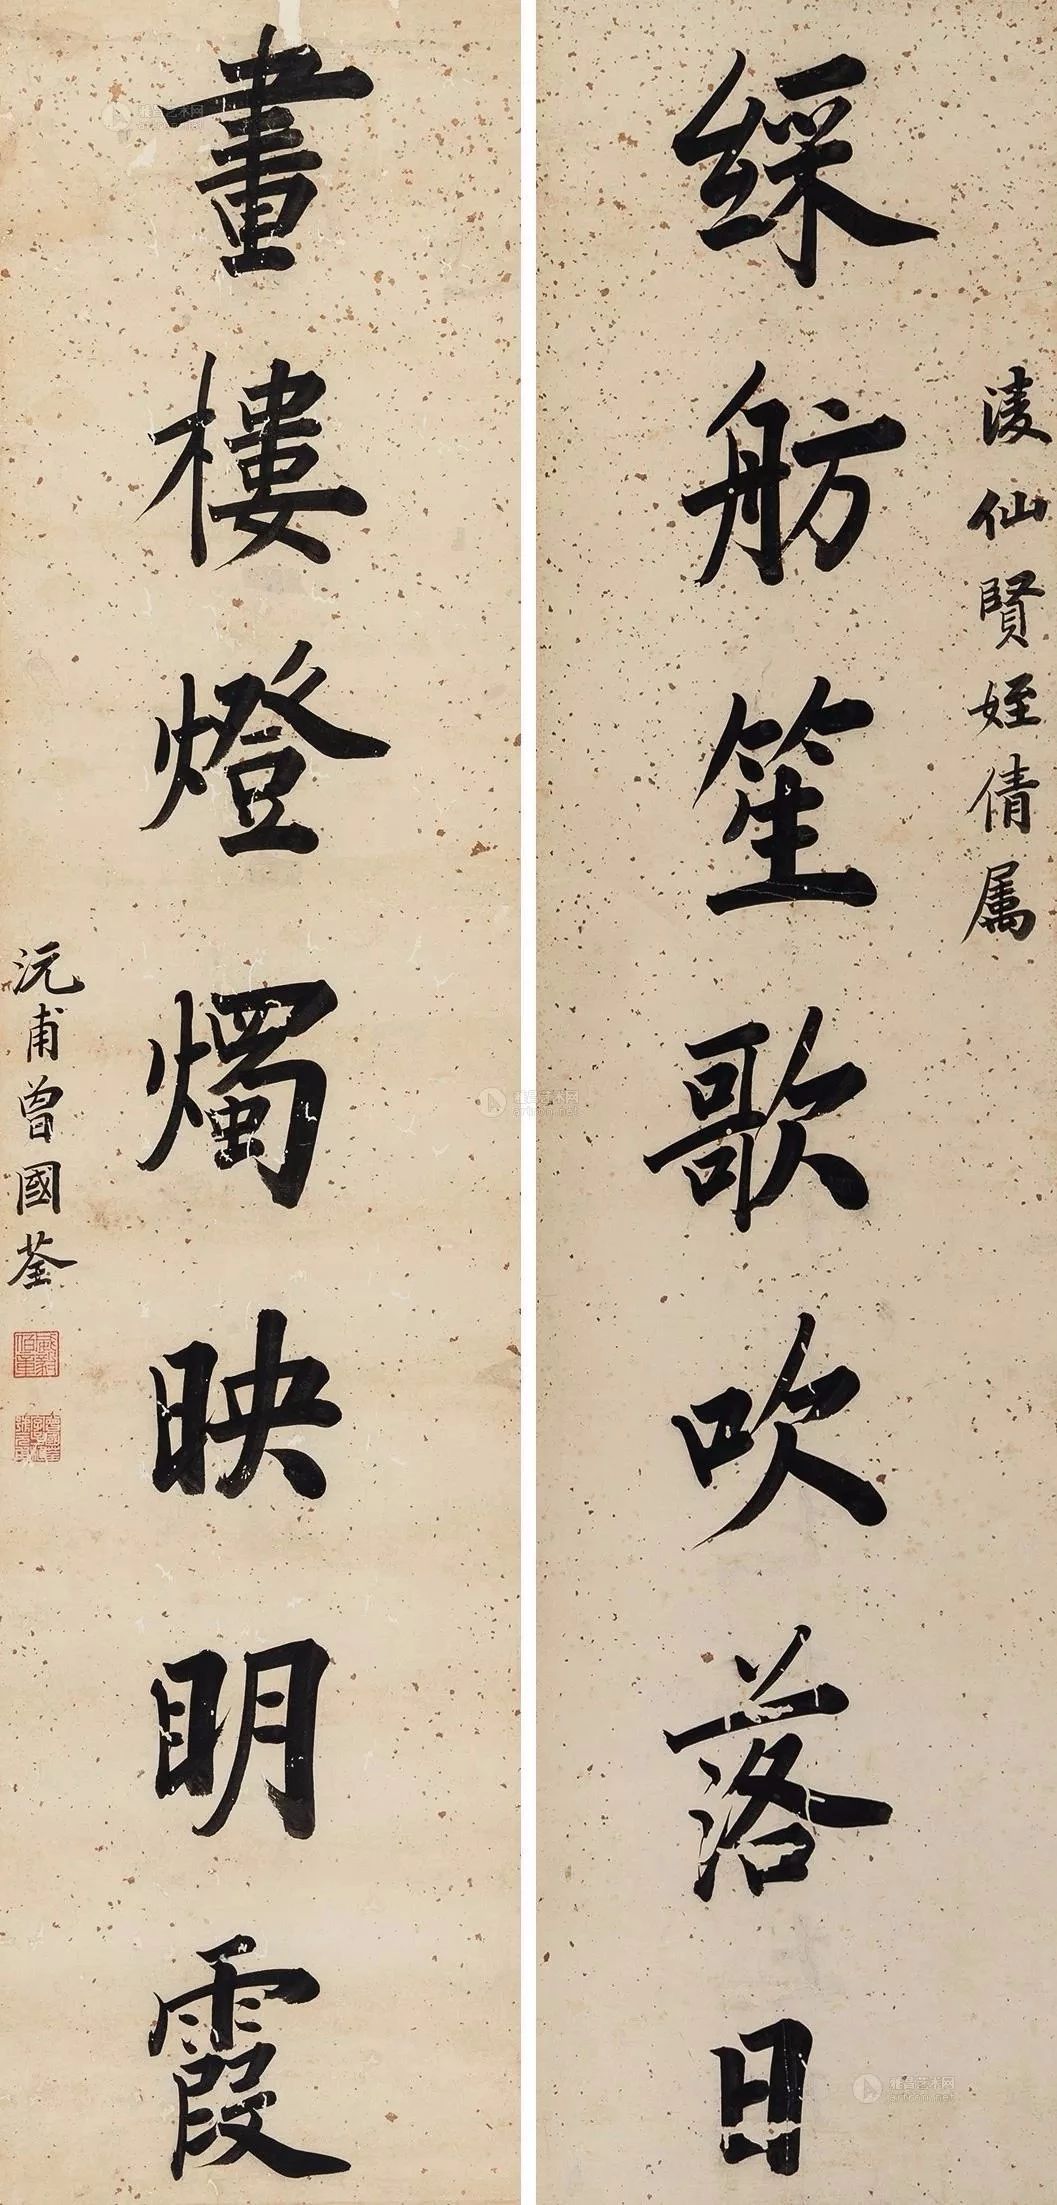 淩仙賢姪倩属
綵舫笙歌吹落日
畫樓燈燭映明霞
沅甫曾國荃
雅昌艺术网
artron.net